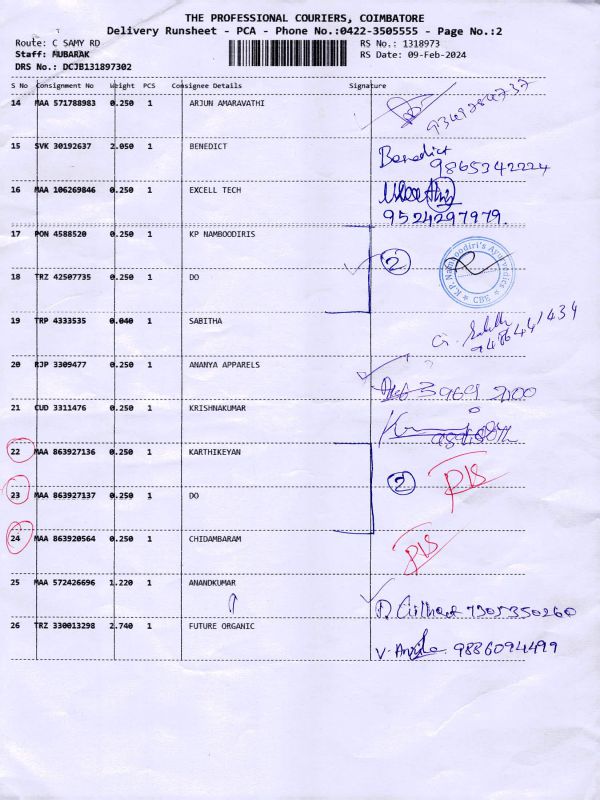 THE PROFESSIONAL COURIERS, COIMBATORE
Delivery Runsheet - PCA - Phone No.:0422-3505555 - Page No.:2
Route: C SAMY RD RS No.: 1318973
Staff: MUBARAK RS Date: 09-Feb-2024
DRS No.: DCJB131897302
S No Consignment No Weight PCS Consignee Details Signature
14 MAA 571788983 0.250 1 ARJUN AMARAVATHI
15 SVK 30192637 2.050 1 BENEDICT Benedict
9865342224
16 MAA 106269846 0.250 1 EXCELL TECH
9524297979.
17 PON 4588520 0.250 1 KP NAMBOODIRIS
2
K.P. Namboodiri's Ayurvedics
CBE
18 TRZ 42507735 0.250 1 DO
19 TRP 4333535 0.040 1 SABITHA
20 RJP 3309477 0.250 1 ANANYA APPARELS
21 CUD 3311476 0.250 1 KRISHNAKUMAR
22 MAA 863927136 0.250 1 KARTHIKEYAN
2
23 MAA 863927137 0.250 1 DO
24 MAA 863920564 0.250 1 CHIDAMBARAM
25 MAA 572426696 1.220 1 ANANDKUMAR
7305350260
26 TRZ 330013298 2.740 1 FUTURE ORGANIC
9886094499